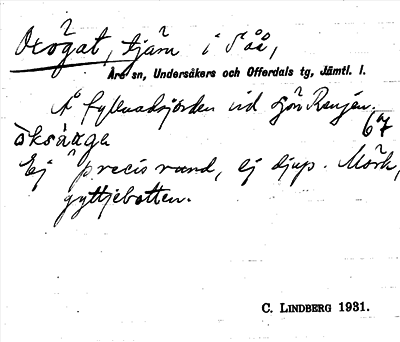 Oxögat, tjärn i Såå,
Åre sn, Undersåkers och Offerdals tg, Jämtl. l.
Å fyllnadsjorden vid sjön Rensjön.
òksàuga 67
Ej precis rund, ej djup. Mörk,
gyttjebotten.
C. LINDBERG 1931.